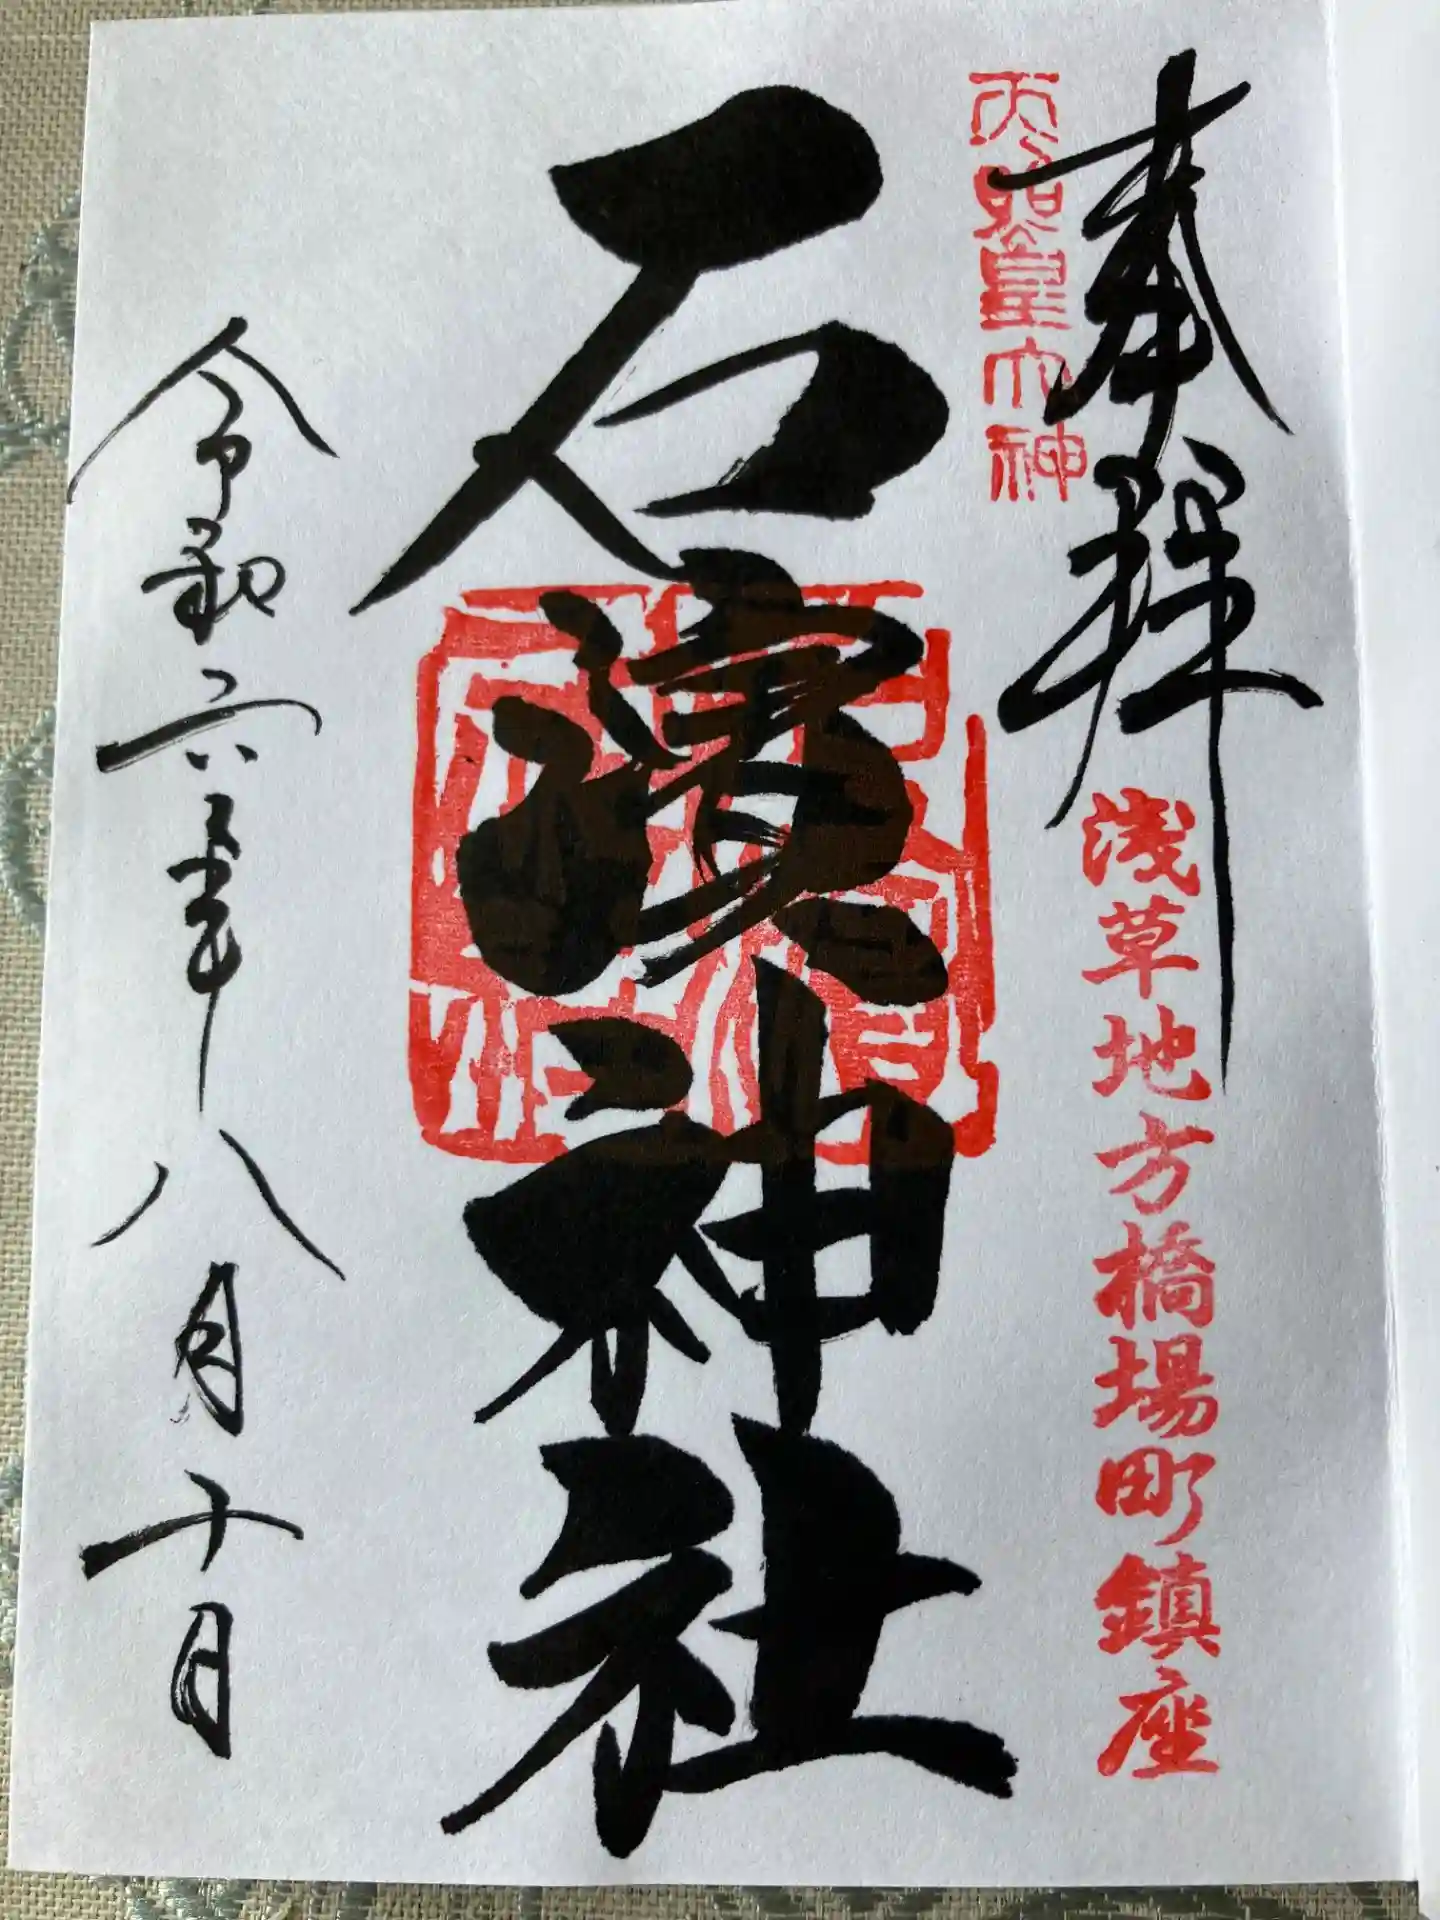 奉拝
天照皇大神
浅草地方橋場町鎮座
石濱神社
令和六年八月十日